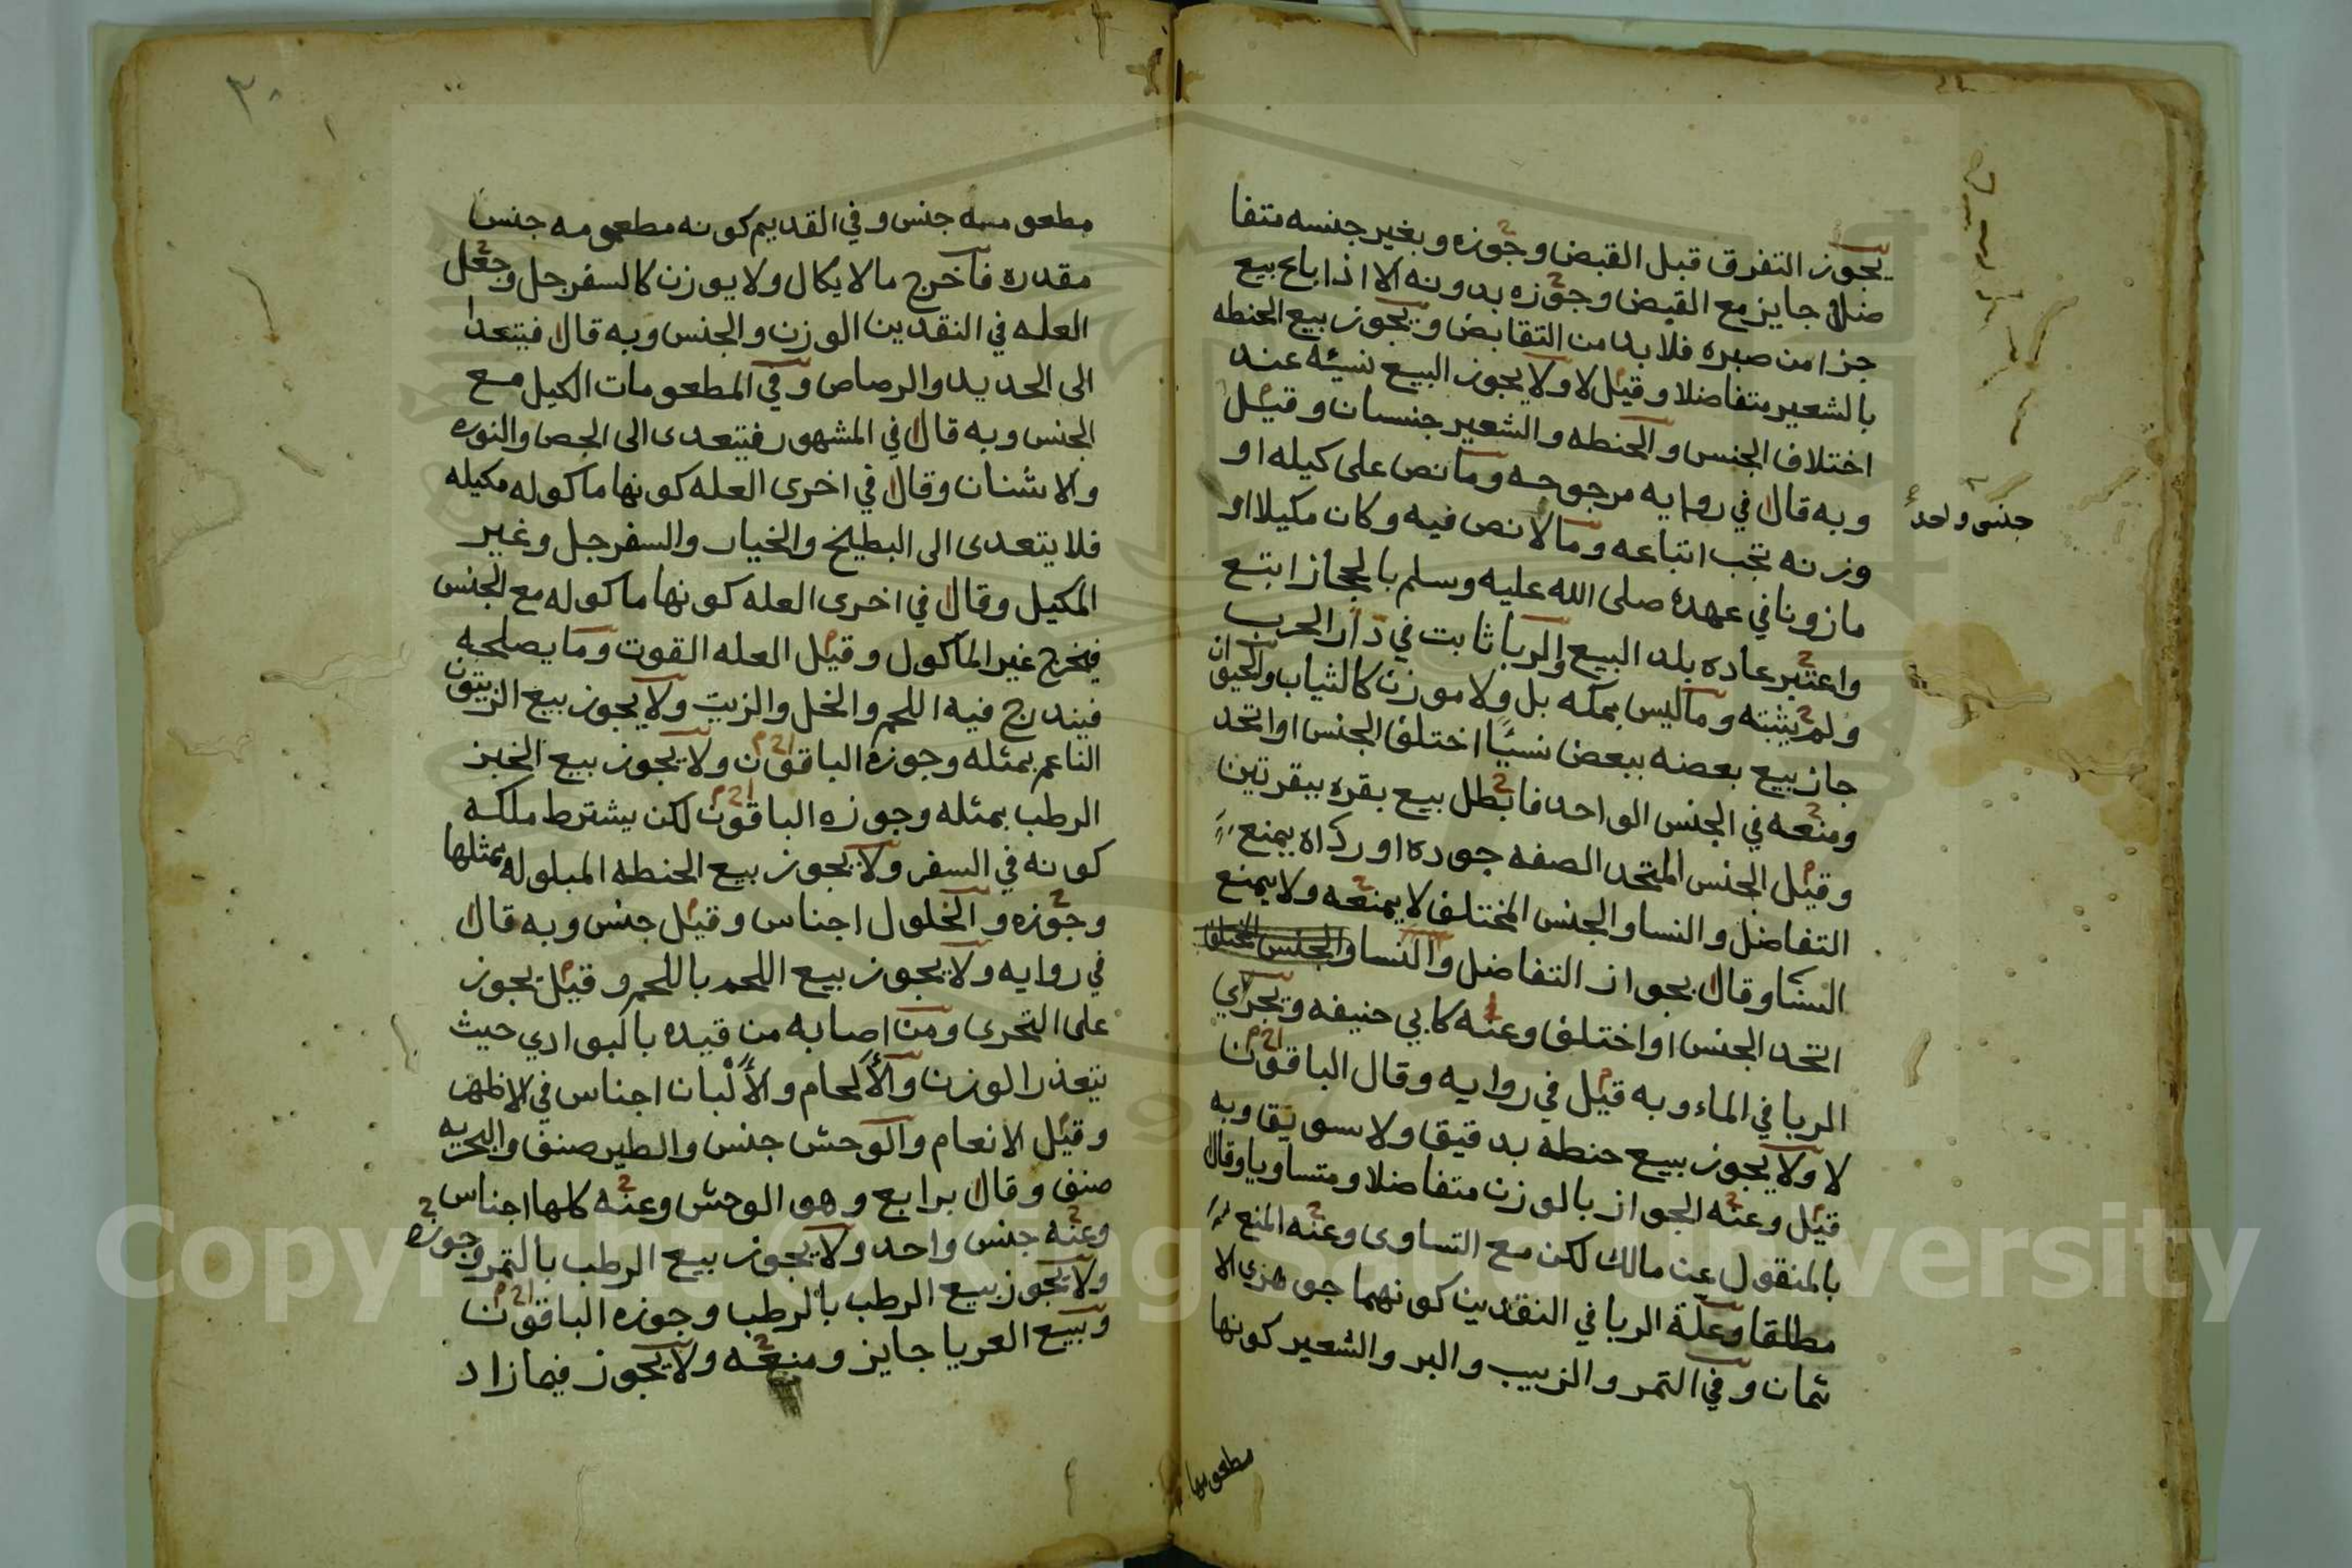 يجوز التفرق قبل القبض وجوزه وبغير جنسه متفا
ضلا جايز مع القبض وجوزه بدونه الا اذا باع بيع
جزا من صبره فلا بد من التقابض ويجوز بيع الحنطه
بالشعير متفاضلا وقيل لا ولا يجوز البيع نسيئه عند
اختلاف الجنس والحنطه والشعير جنسان وقيل
جنس واحد
وبه قال في روايه مرجوحه وما نص على كيله او
وزنه تجب اتباعه وما لا نص فيه وكان مكيلا او
مازونا في عهده صلى الله عليه وسلم بالحجاز اتبع
واعتبر عاده بلد البيع والربا ثابت في دار الحرب
ولم يثبته وما ليس بمكيل ولا موزن كالثياب والحيوان
جاز بيع بعضه ببعض نسيًا اختلف الجنس او اتحد
ومنعه في الجنس الواحد فابطل بيع بقره ببقرتين
وقيل الجنس المتحد الصفه جوده او رداه يمنع
التفاضل والنسا والجنس المختلف لا يمنعه ولا يمنع
النسا وقال بجواز التفاضل والنسا والجنس المختلف
اتحد الجنس او اختلف وعنه كابي حنيفه ويجري
الربا في الماء وبه قيل في روايه وقال الباقون
لا ولا يجوز بيع حنطه بدقيق ولا سويق وبه
قيل وعنه الجواز بالوزن متفاضلا ومتساويا وقال
بالمنقول عن مالك لكن مع التساوى وعنه المنع
مطلقا وعلة الربا في النقدين كونهما جوهري الا
ثمان وفي التمر والزبيب والبر والشعير كونها
مطعومها
٣٠
مطعومه جنس وفي القديم كونه مطعومه جنس
مقدره فاخرج ما لا يكال ولا يوزن كالسفرجل وجعل
العله في النقدين الوزن والجنس وبه قال فيتعدا
الى الحديد والرصاص وفي المطعومات الكيل مع
الجنس وبه قال في المشهور فيتعدى الى الجص والنوره
والاشنان وقال في اخرى العله كونها ماكوله مكيله
فلا يتعدى الى البطيخ والخيار والسفرجل وغير
المكيل وقال في اخرى العله كونها ماكوله مع الجنس
فيخرج غير الماكول وقيل العله القوت وما يصلحه
فيندرج فيه اللحم والخل والزيت ولا يجوز بيع الزيتون
الناعم بمثله وجوزه الباقون ولا يجوز بيع الخبز
الرطب بمثله وجوزه الباقون لكن يشترط ملكه
كونه في السفر ولا يجوز بيع الحنطه المبلوله بمثلها
وجوزه والخلول اجناس وقيل جنس وبه قال
في روايه ولا يجوز بيع اللحم باللحم وقيل يجوز
على التحرى ومن اصابه من قيده بالبوادي حيث
يتعذر الوزن والألحام والألبان اجناس في الاظهر
وقيل الانعام والوحش جنس والطير صنف والبحريه
صنف وقال برابع وهو الوحش وعنه كلها اجناس
وعنه جنس واحد ولا يجوز بيع الرطب بالتمر وجوزه
ولا يجوز بيع الرطب بالرطب وجوزه الباقون
وبيع العريا جايز ومنعه ولا يجوز فيما زاد
Copyright © King Saud University